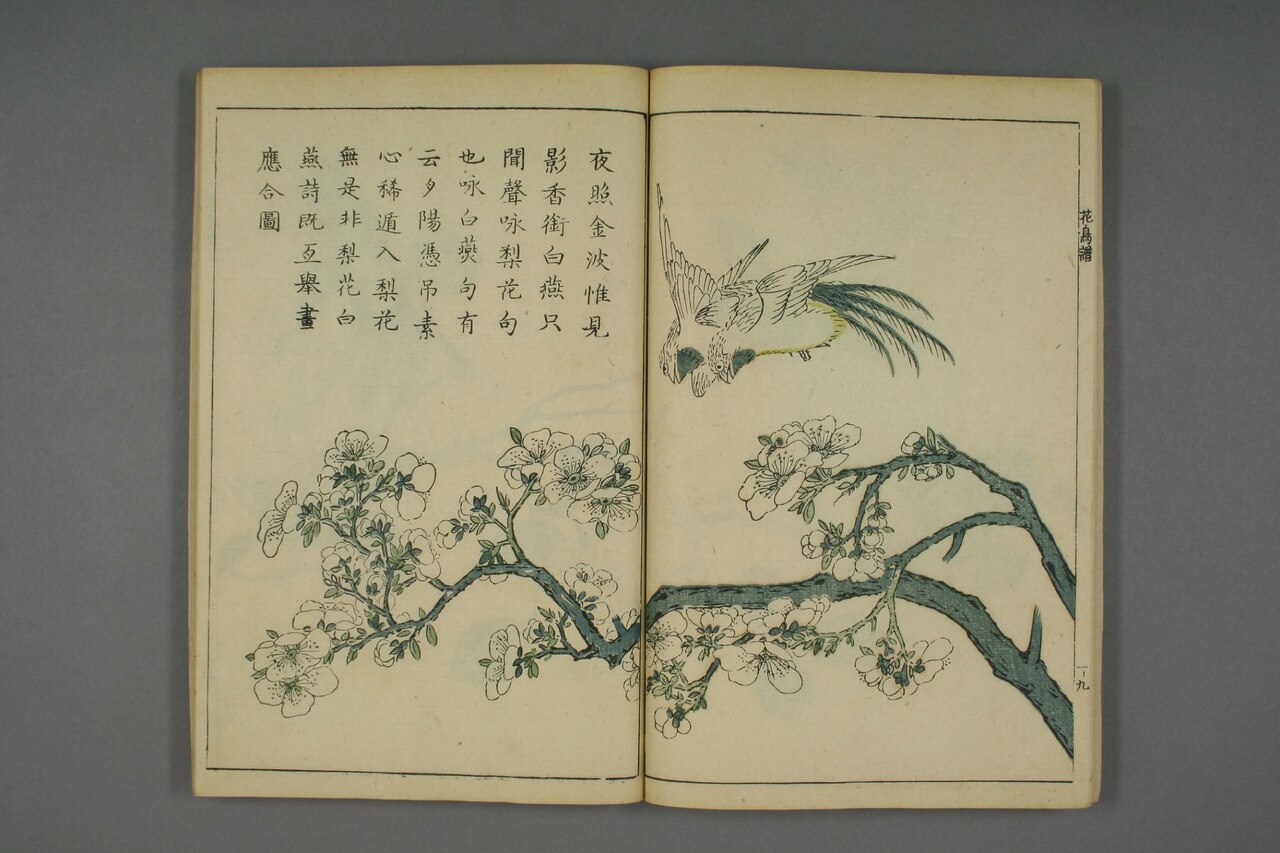 花鳥譜
一ノ九
夜照金波惟見
影香銜白燕只
聞聲咏梨花句
也咏白燕句有
云夕陽憑吊素
心稀遁入梨花
無是非梨花白
燕詩既互舉畫
應合圖